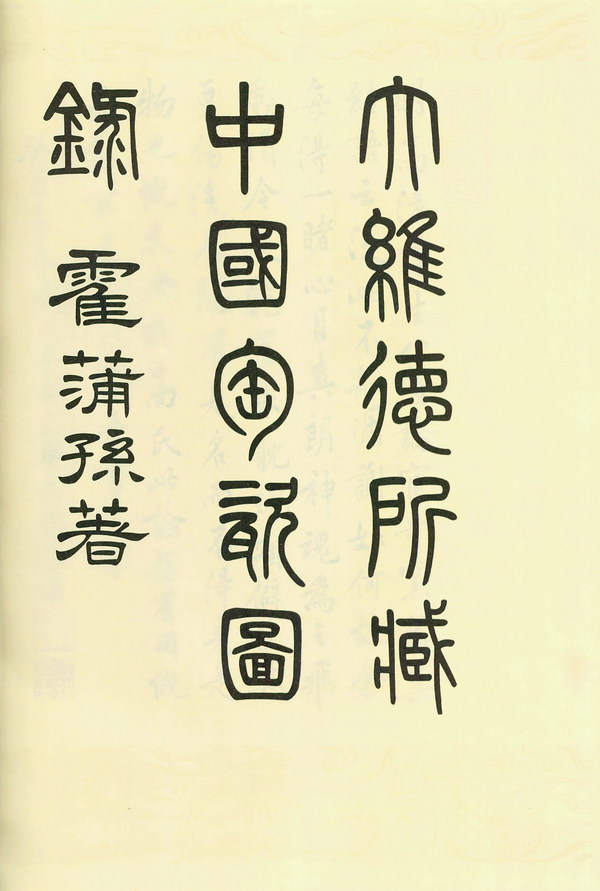 大維德所藏
中國陶瓷圖
錄 霍蒲孫著